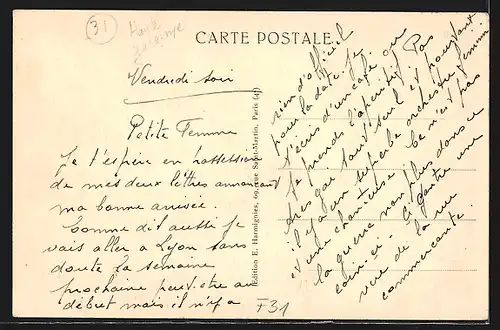 31
Haute
Garonne
CARTE POSTALE
Vendredi soir
Petite Femme
Je t'espère en possession
de mes deux lettres annonçant
ma bonne arrivée.
Comme dit aussi je
vais aller à Lyon sans
doute la semaine
prochaine peut-être au
début mais il n'y a
Edition E. Hamignies, rue Saint-Martin, Paris
F31
rien d'officiel
pour la date. Je
t'écris d'un café ou
je prends l'apéritif. Pas
très gai tout seul et pourtant
il y a un superbe orchestre féminin
et une chanteuse. Ce n'est pas
la guerre non plus dans ce
coin-ci. Ci contre une
vue de la rue
commerçante.